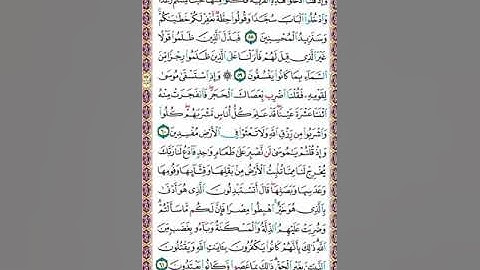 وَإِذْ قُلْنَا ادْخُلُوا هَٰذِهِ الْقَرْيَةَ فَكُلُوا مِنْهَا حَيْثُ شِئْتُمْ رَغَدًا
وَادْخُلُوا الْبَابَ سُجَّدًا وَقُولُوا حِطَّةٌ نَّغْفِرْ لَكُمْ خَطَايَاكُمْ
وَسَنَزِيدُ الْمُحْسِنِينَ ٥٨ فَبَدَّلَ الَّذِينَ ظَلَمُوا قَوْلًا
غَيْرَ الَّذِي قِيلَ لَهُمْ فَأَنزَلْنَا عَلَى الَّذِينَ ظَلَمُوا رِجْزًا مِّنَ
السَّمَاءِ بِمَا كَانُوا يَفْسُقُونَ ٥٩ ۞ وَإِذِ اسْتَسْقَىٰ مُوسَىٰ
لِقَوْمِهِ فَقُلْنَا اضْرِب بِّعَصَاكَ الْحَجَرَ فَانفَجَرَتْ مِنْهُ
اثْنَتَا عَشْرَةَ عَيْنًا قَدْ عَلِمَ كُلُّ أُنَاسٍ مَّشْرَبَهُمْ كُلُوا
وَاشْرَبُوا مِن رِّزْقِ اللَّهِ وَلَا تَعْثَوْا فِي الْأَرْضِ مُفْسِدِينَ ٦٠
وَإِذْ قُلْتُمْ يَا مُوسَىٰ لَن نَّصْبِرَ عَلَىٰ طَعَامٍ وَاحِدٍ فَادْعُ لَنَا رَبَّكَ
يُخْرِجْ لَنَا مِمَّا تُنبِتُ الْأَرْضُ مِن بَقْلِهَا وَقِثَّائِهَا وَفُومِهَا
وَعَدَسِهَا وَبَصَلِهَا قَالَ أَتَسْتَبْدِلُونَ الَّذِي هُوَ أَدْنَىٰ
بِالَّذِي هُوَ خَيْرٌ اهْبِطُوا مِصْرًا فَإِنَّ لَكُم مَّا سَأَلْتُمْ
وَضُرِبَتْ عَلَيْهِمُ الذِّلَّةُ وَالْمَسْكَنَةُ وَبَاءُو بِغَضَبٍ مِّنَ
اللَّهِ ذَٰلِكَ بِأَنَّهُمْ كَانُوا يَكْفُرُونَ بِآيَاتِ اللَّهِ وَيَقْتُلُونَ
النَّبِيِّينَ بِغَيْرِ الْحَقِّ ذَٰلِكَ بِمَا عَصَوا وَّكَانُوا يَعْتَدُونَ ٦١